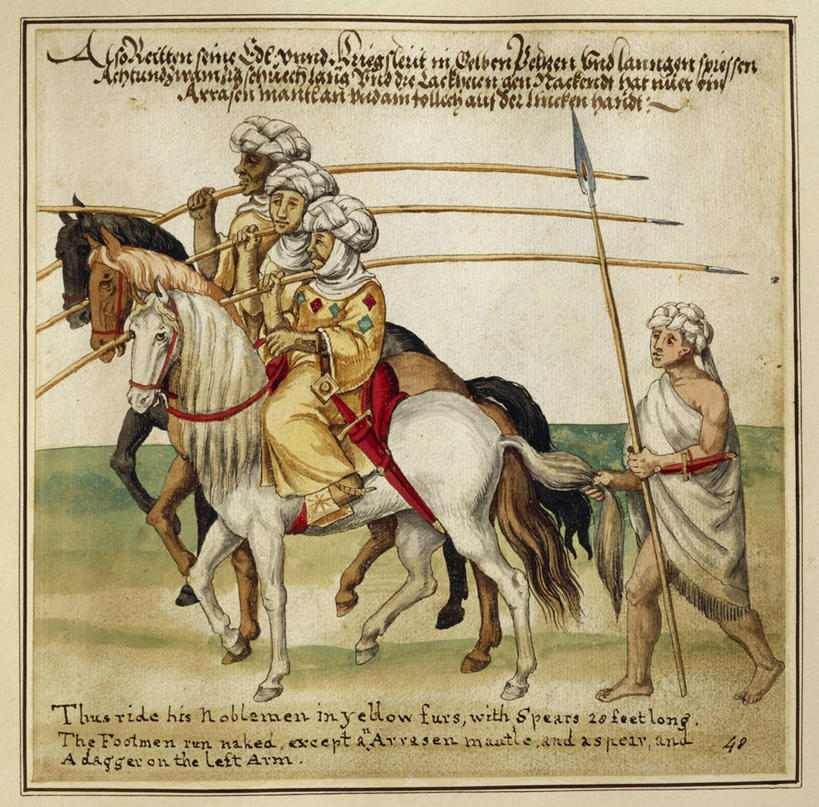 Also Reitten seine Edl vnnd Kriegsleüt in Gelben Beltzen Vnd lanngen spiessen
Achtundzwainzig schuech lang Vnd die Lackheien gen Nackendt hat nuer ein
Arrasen mantl an vnd ain tollech auf der lincken handt :~
Thus ride his Noblemen in yellow furs, with Spears 28 feet long.
The Footmen run naked, except an Arrasen mantle, and a spear, and 48
A dagger on the left Arm.